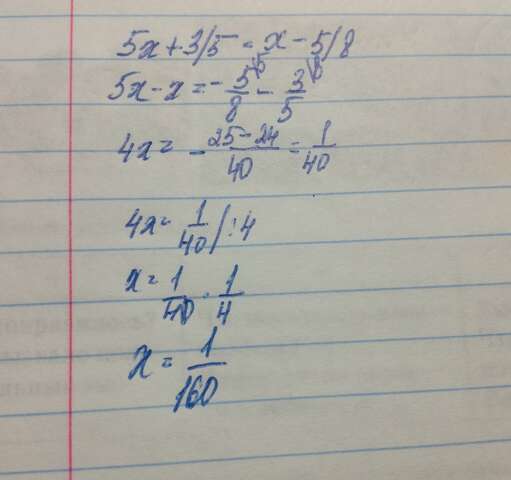 5x + 3/5 = x - 5/8
5x - x = - 5/8 - 3/5
4x = - 25 - 24/40 = 1/40
4x = 1/40 / : 4
x = 1/40 · 1/4
x = 1/160